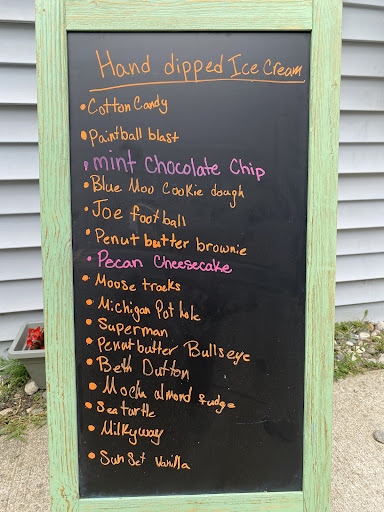 Hand dipped Ice Cream
• Cotton Candy
• Paintball blast
• mint Chocolate Chip
• Blue Moo Cookie dough
• Joe football
• Penut butter brownie
• Pecan Cheesecake
• Moose tracks
• Michigan Pot hole
• Superman
• Penut butter Bullseye
• Beth Dutton
• Mocha almond fudge
• Sea turtle
• Milkyway
• Sun Set Vanilla